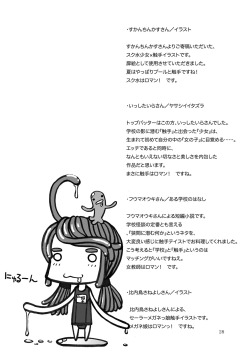 ・すかんちんかすさん／イラスト
すかんちんかすさんよりご寄稿いただいた、
スク水少女×触手イラストです。
扉絵として使用させていただきました。
夏はやっぱりプールと触手ですね！
スク水はロマン！　ですね。
・いっしたいらさん／ヤサシイイタズラ
トップバッターはこの方、いっしたいらさんでした。
学校の影に潜む「触手」と出会った「少女」は、
生まれて初めて自分の中の「女の子」に目覚める……。
エッチであると同時に、
なんともいえない切なさと美しさを内包した
作品だと思います。
まさに触手はロマン！　ですね。
・フウマオウキさん／ある学校のはなし
フウマオウキさんによる短編小説です。
学校怪談の定番とも言える
「誰に触手テイストでお料理してくれました。
こう考えると「学校」と「触手」というのは
マッチングがいいんですね。
女教師はロマン！　ですね。
・比内鳥さねよしさん／イラスト
比内鳥さねよしさんによる、
セーラーメガネっ娘触手イラストです。
メガネ娘はロマンっ！　ですね。
にゅるーん
29